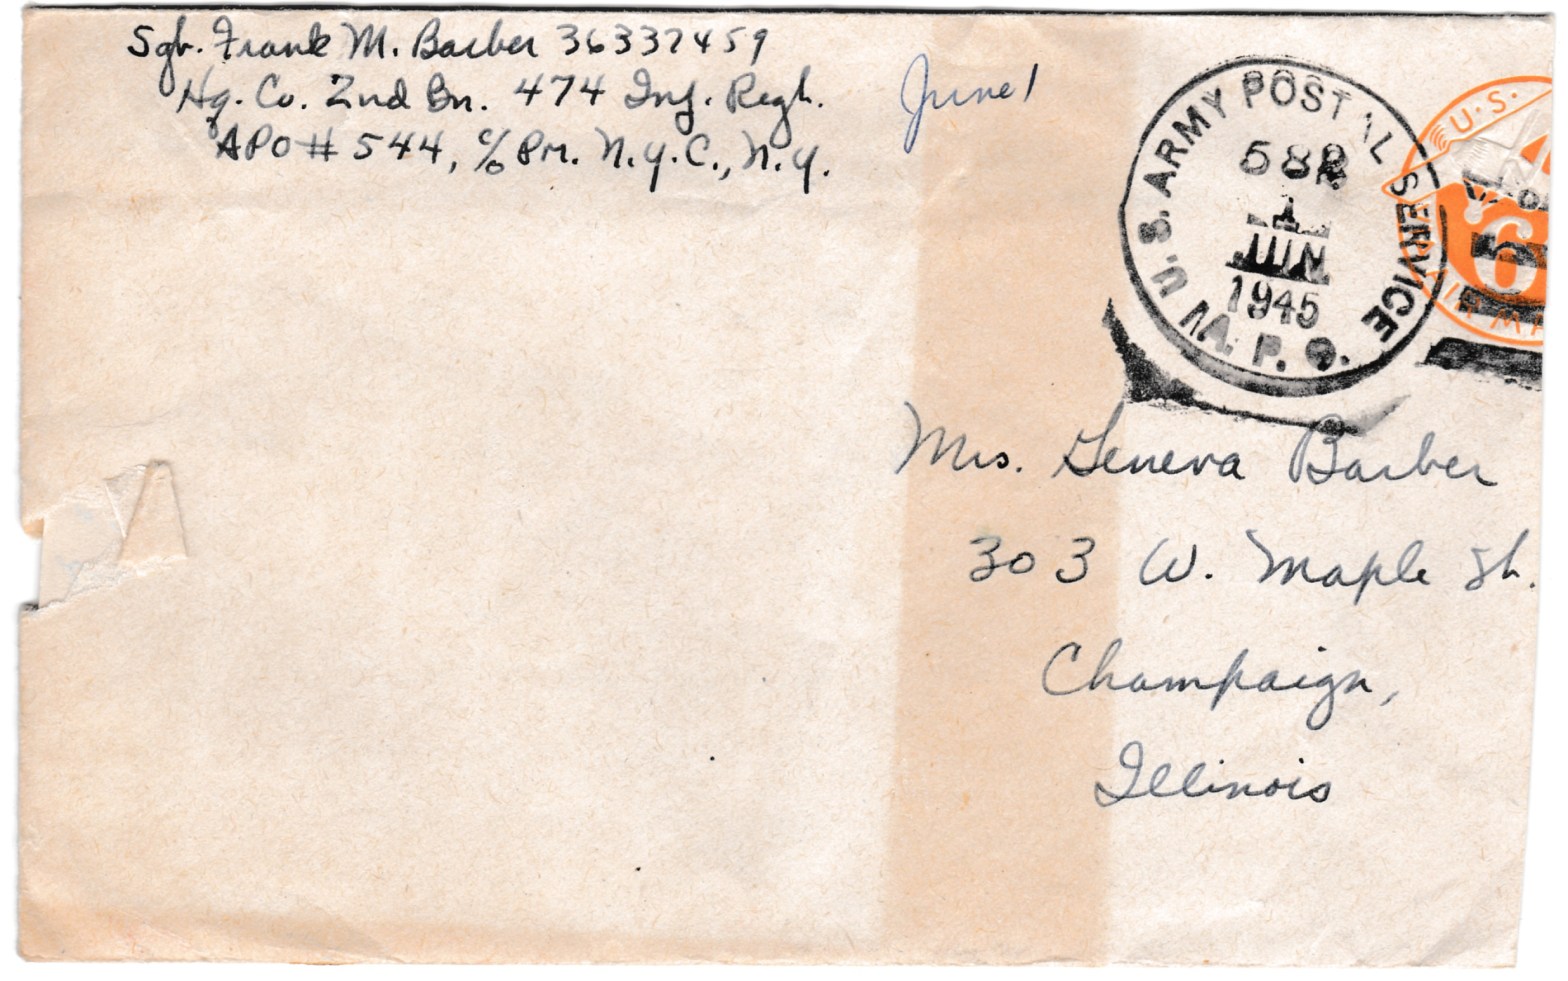 Sgt. Frank M. Barber 36337459
Hq. Co. 2nd Bn. 474 Inf. Regt.
APO # 544, c/o PM. N.Y.C., N.Y.
June 1
U.S. ARMY POSTAL SERVICE
582
1
JUN
1945
A.P.O.
U.S.
6
AIR MA
Mrs. Geneva Barber
303 W. Maple St.
Champaign,
Illinois